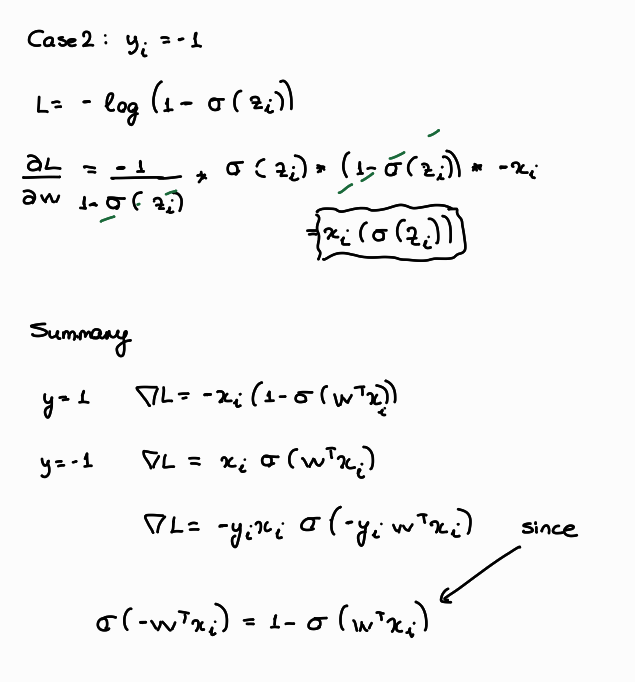 Case 2: y_i = -1
L = - log (1 - σ(z_i))
∂L/∂w = -1/(1-σ(z_i)) * σ(z_i) * (1-σ(z_i)) * -x_i
= x_i (σ(z_i))
Summary
y=1 ∇L = -x_i (1-σ(w^T x_i))
y=-1 ∇L = x_i σ(w^T x_i)
∇L = -y_i x_i σ(-y_i w^T x_i) since
σ(-w^T x_i) = 1 - σ(w^T x_i)